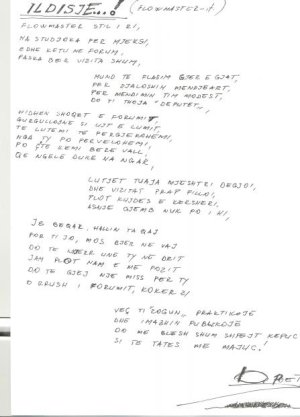 ILDISJE...! (FLOWMASTER-it)
FLOWMASTER STIL I RI,
NA STUDJOKA PER MJEKSI,
EDHE KETU NE FORUM,
PASKA BER VIZITA SHUM,
MUND TE FLASIM GJER E GJAT,
PER DJALOSHIN MENDJEART,
PER MENDIMIN TIM MODEST,
DO TI THOJA "DEPUTET",
HIDHEN SHOQET E FORUMIT,
GURGULLOJNE SI UJT E LUMIT,
TE LUTEMI TE PERGJEROHEMI,
NGA TY PO PERVELOHEMI,
PO ÇTE KEMI BERE VALL,
QE NGELE DUKE NA NGAR,
LUTJET TUAJA MJESHTRI DEGJOI,
DHE VIZITAT PRAP FILLOI,
PLOT KUJDES E KERSHERI,
ASNJE GJEMB NUK PO I HI,
JE BEQAR, HALLIN TA QAJ
POR TI JO, MOS BJER NE VAJ
DO TE NXJERR UNE TY NE DRIT
JAM PLOT NAM E ME POZIT
DO TE GJEJ NJE MISS PER TY
O RRUSH I FORUMIT, KOKER ZI
VEÇ TI LOGUN, PRAKTIKOJE
DHE IMAZHIN PUBLIKOJE
DO ME BLESH SHUM SHPEJT KEPUC
SI TE TATES ME MAJUC!